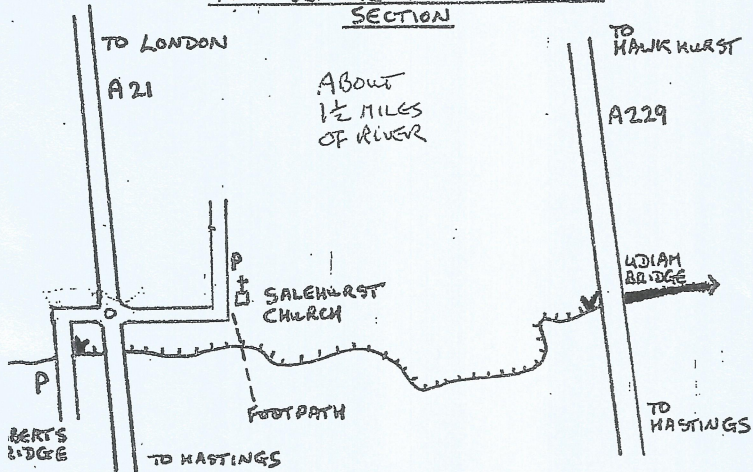 SECTION
TO LONDON
A21
ABOUT
1½ MILES
OF RIVER
TO
HAWKHURST
A229
UDIAM
BRIDGE
P
SALEHURST
CHURCH
P
FOOTPATH
BERTS
IDGE
TO HASTINGS
TO
HASTINGS